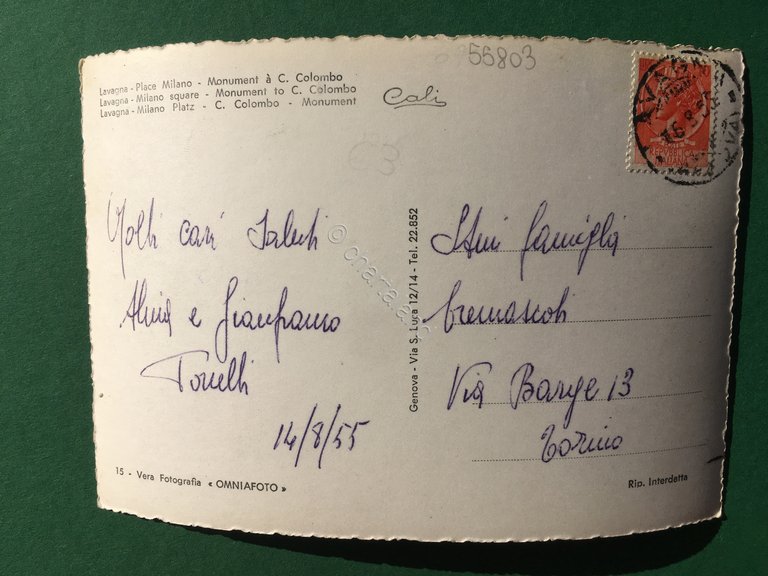 55803
Lavagna - Place Milano - Monument à C. Colombo
Lavagna - Milano square - Monument to C. Colombo
Lavagna - Milano Platz - C. Colombo - Monument
Cali
Molti cari saluti
Alma e Gianfranco
Torrelli
14/8/55
15 - Vera Fotografia « OMNIAFOTO »
Genova - Via S. Luca 12/14 - Tel. 22.852
© charta
REPUBBLICA
ITALIANA
LAVAGNA
16.8.55
Stim famiglia
Cremascoli
Via Barge 13
Torino
Rip. Interdetta